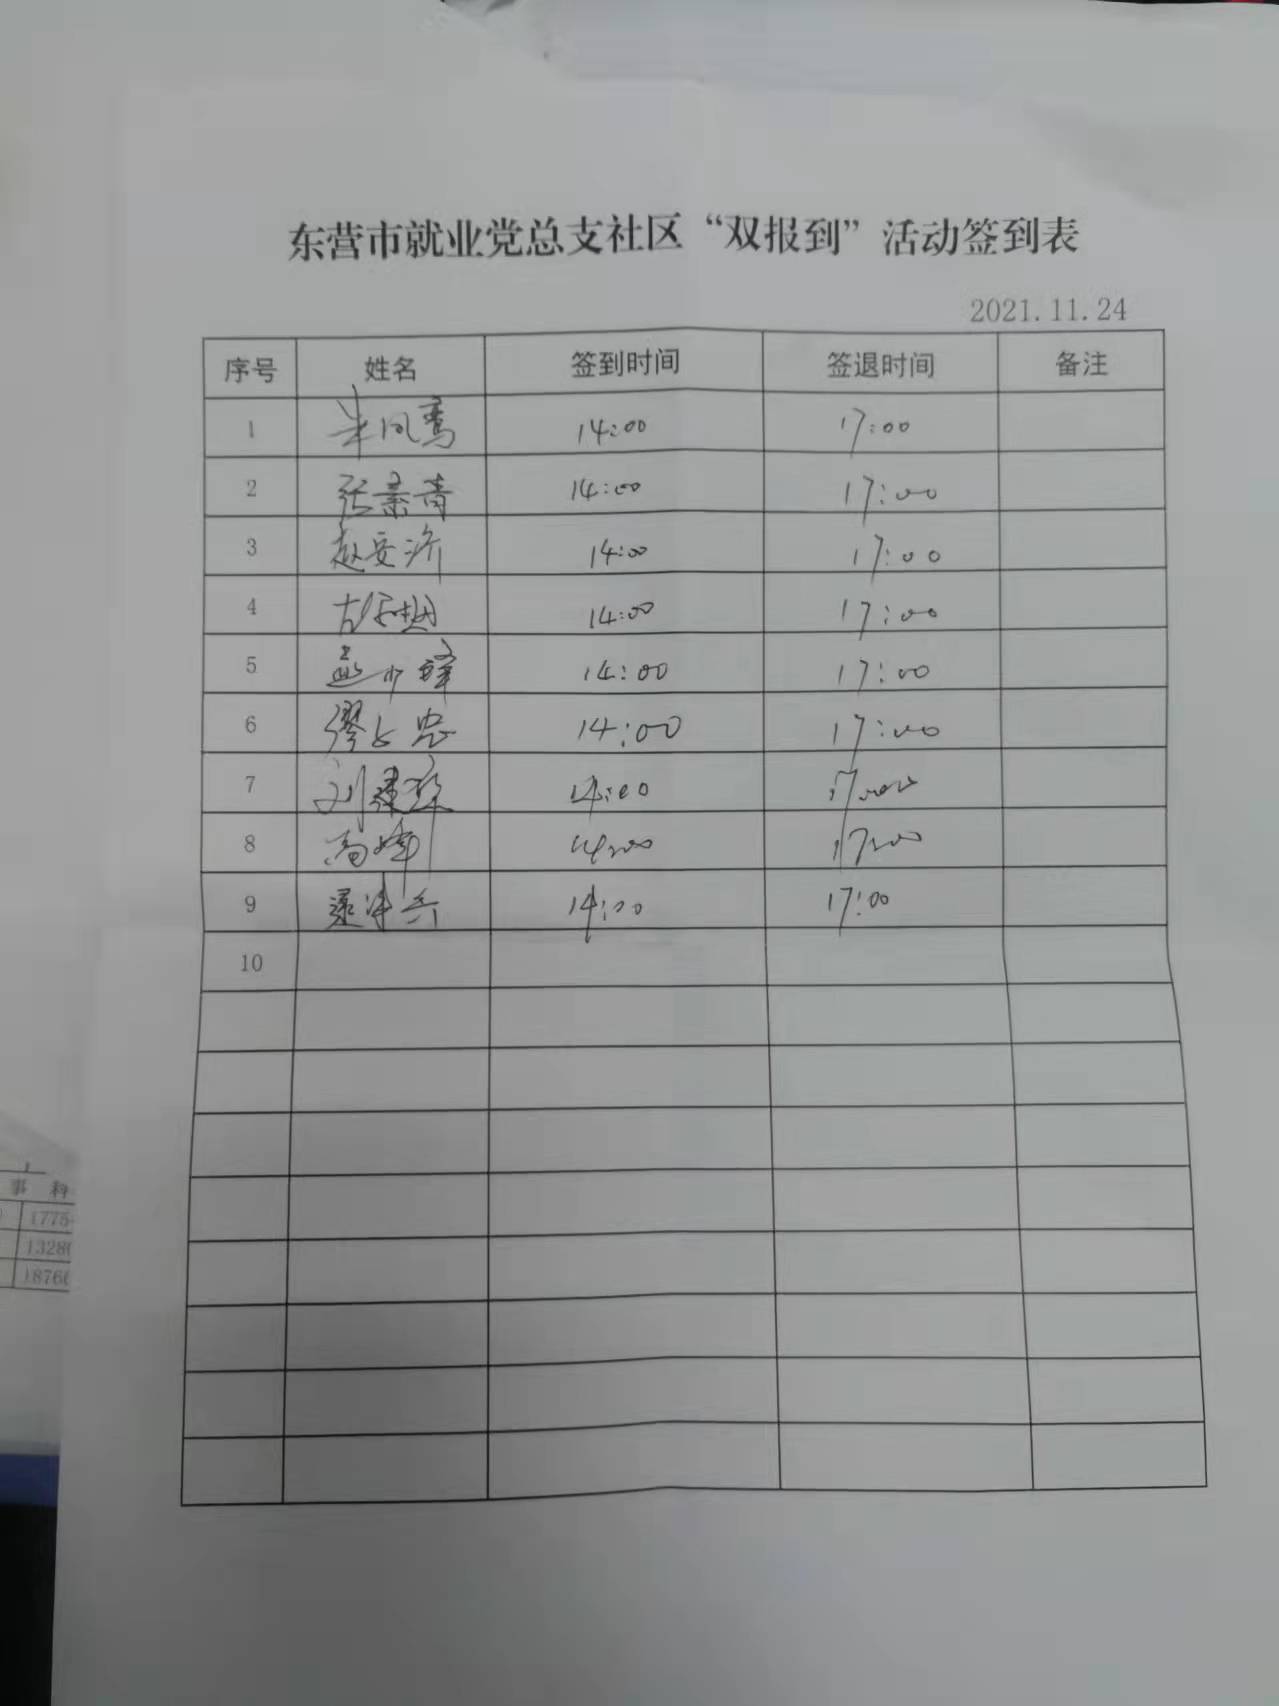 东营市就业党总支社区“双报到”活动签到表
2021.11.24
序号 姓名 签到时间 签退时间 备注
1 朱凤鸾 14:00 17:00
2 张素青 14:00 17:00
3 赵安济 14:00 17:00
4 14:00 17:00
5 14:00 17:00
6 缪占忠 14:00 17:00
7 14:00 17:00
8 高峰 14:00 17:00
9 14:00 17:00
10
事 科
1775
1328
1876